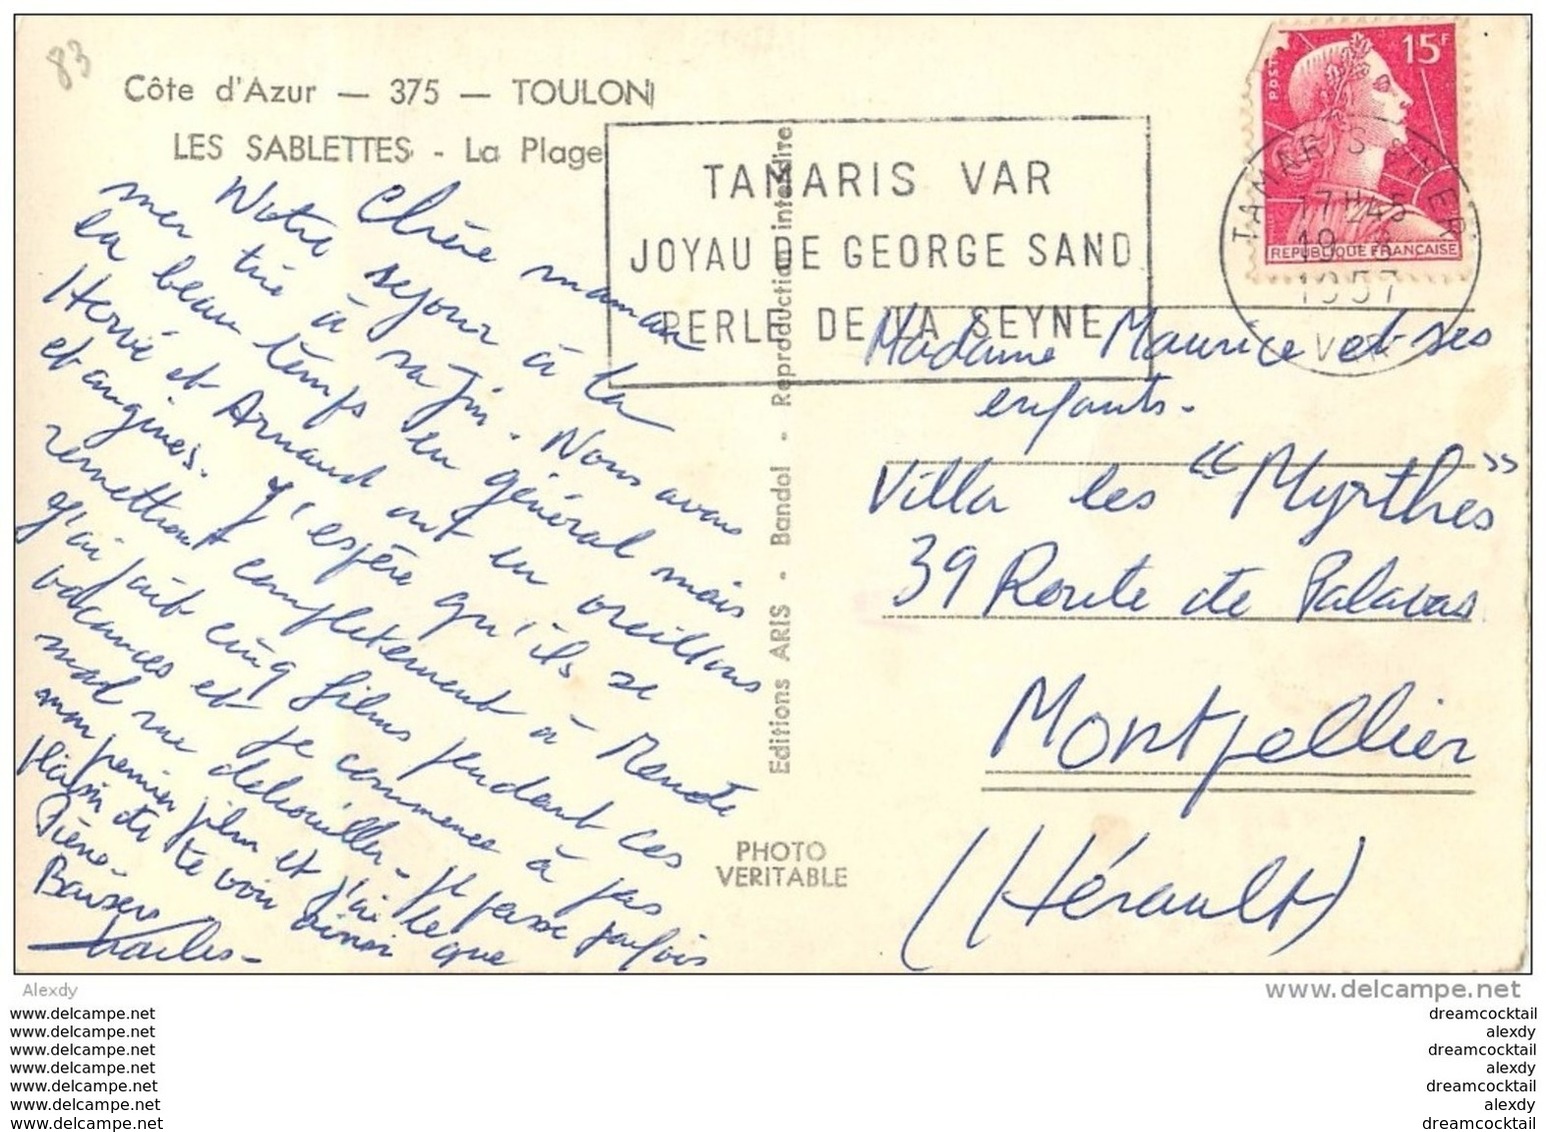 83
Côte d'Azur — 375 — TOULON
LES SABLETTES - La Plage
Chère maman
Notre sejour à la
mer tire à sa fin. Nous avons
eu beau temps en général mais
Hervé et Arnaud ont eu oreillons
et angines. J'espère qu'ils se
remettront completement à Mende
J'ai fait cinq films pendant ces
vacances et je commence à pas
mal me debrouiller. Je passe parfois
mon premier film et j'ai le que
plaisir de te voir ainsi
Pierre.
Baisers
Charles-
Editions ARIS - Bandol - Reproduction interdite
PHOTO
VERITABLE
TAMARIS VAR
JOYAU DE GEORGE SAND
PERLE DE LA SEYNE
POSTES
15F
REPUBLIQUE FRANÇAISE
TAMARIS S/MER
17H45
19
1957
VAR
Madame Maurice et ses
enfants-
Villa les "Myrthes"
39 Route de Palavas
Montpellier
(Hérault)
Alexdy
www.delcampe.net
www.delcampe.net
www.delcampe.net
www.delcampe.net
www.delcampe.net
www.delcampe.net
www.delcampe.net
www.delcampe.net
dreamcocktail
alexdy
dreamcocktail
alexdy
dreamcocktail
alexdy
dreamcocktail